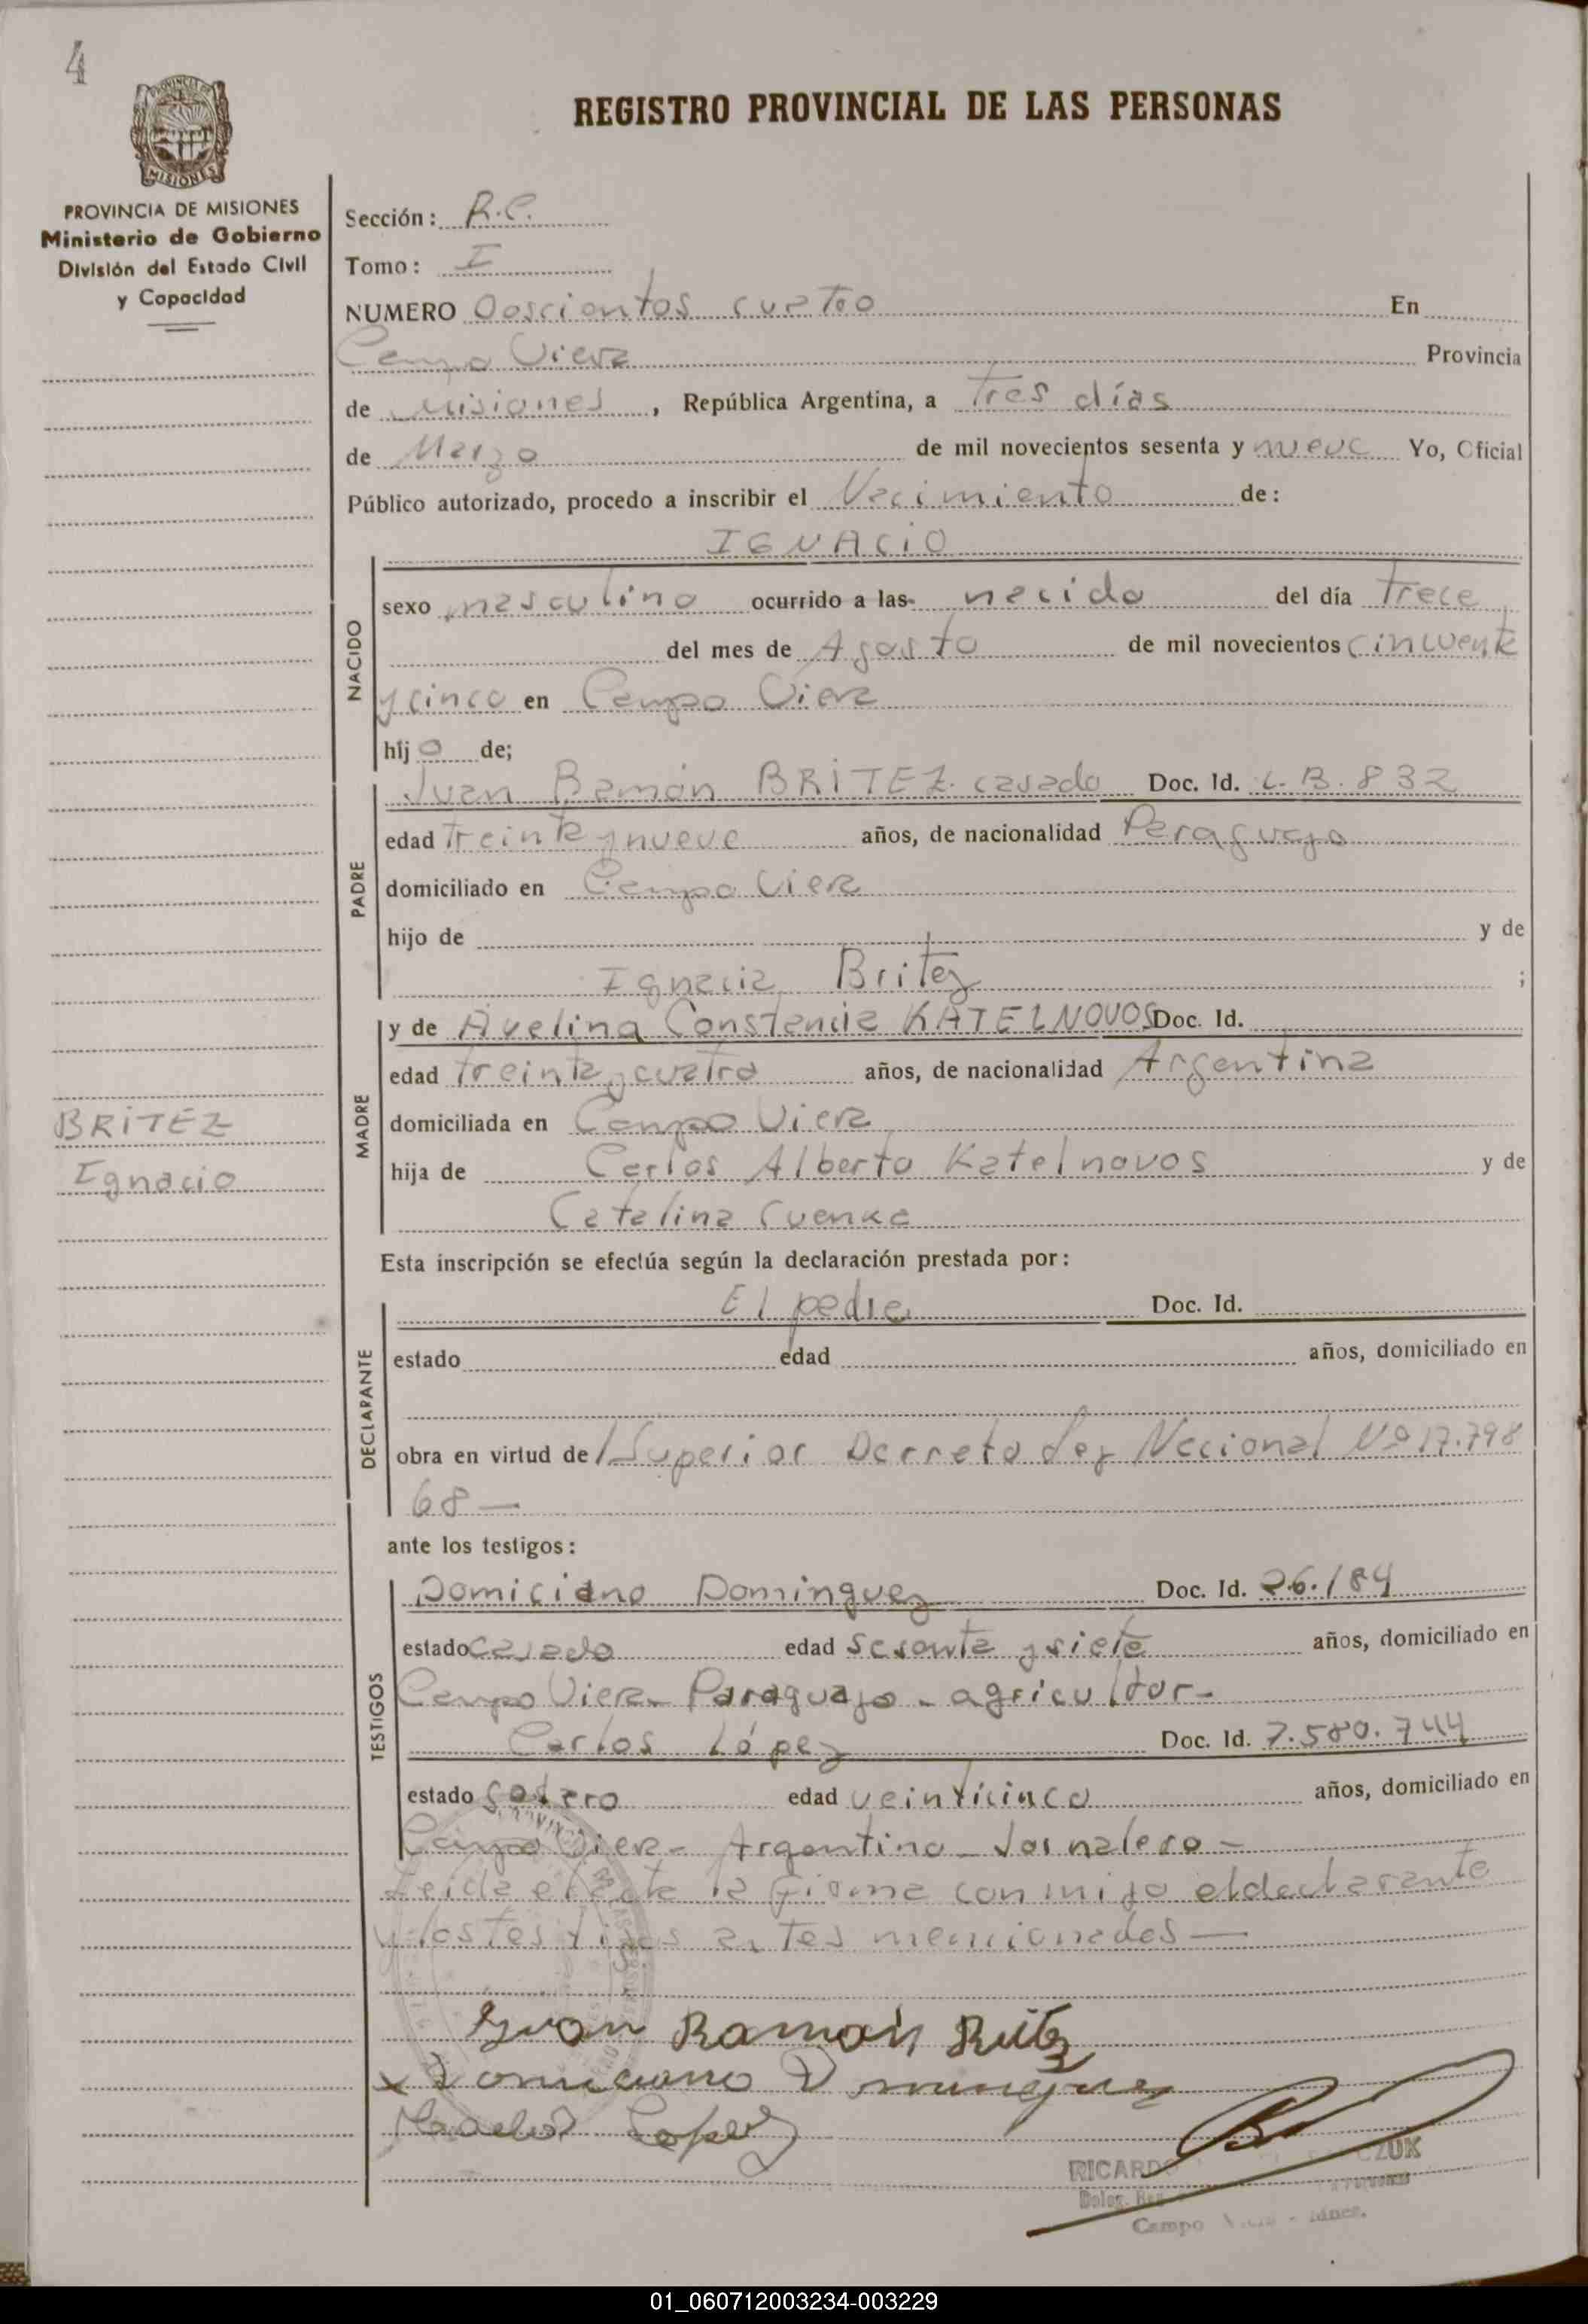 4
PROVINCIA DE MISIONES
Ministerio de Gobierno
División del Estado Civil
y Capacidad
REGISTRO PROVINCIAL DE LAS PERSONAS
Sección: R.C.
Tomo: I
NUMERO Doscientos cuatro En
Campo Viera Provincia
de Misiones, República Argentina, a Tres días
de Marzo de mil novecientos sesenta y nueve Yo, Oficial
Público autorizado, procedo a inscribir el Nacimiento de:
IGNACIO
NACIDO
sexo masculino ocurrido a las nacido del día Trece
del mes de Agosto de mil novecientos cincuenta
y cinco en Campo Viera
hijo de;
PADRE
Juan Ramón BRITEZ. casado Doc. Id. L.B. 832
edad Treinta y nueve años, de nacionalidad Paraguayo
domiciliado en Campo Viera
hijo de y de
Ignacia Britez ;
MADRE
y de Avelina Constancia KATELNOVOS Doc. Id.
edad Treinta y cuatro años, de nacionalidad Argentina
domiciliada en Campo Viera
hija de Carlos Alberto Katelnovos y de
Catalina Cuenka
BRITEZ
Ignacio
Esta inscripción se efectúa según la declaración prestada por:
DECLARANTE
El padre Doc. Id.
estado edad años, domiciliado en
obra en virtud de Superior Decreto Ley Nacional Nº 17.798
68—
ante los testigos:
TESTIGOS
Domiciano Dominguez Doc. Id. 26.184
estado casado edad sesenta y siete años, domiciliado en
Campo Viera - Paraguayo - agricultor -
Carlos López Doc. Id. 7.580.744
estado soltero edad veinticinco años, domiciliado en
Campo Viera - Argentino - Jornalero -
Leida el acta la firma conmigo el declarante
y los testigos antes mencionados —
Juan Ramón Britez
x Domiciano Dominguez
Lopez
RICARDO CZUK
Deleg.
Campo
01_060712003234-003229